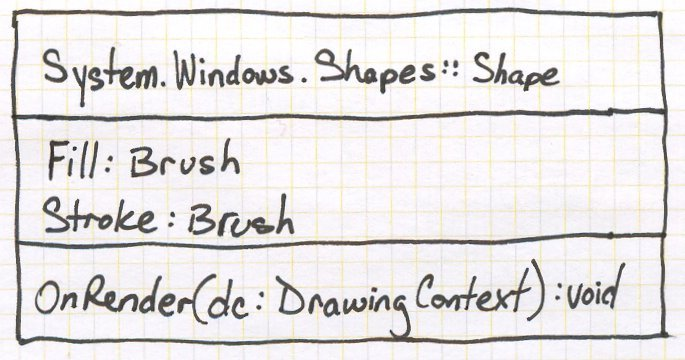 System.Windows.Shapes::Shape
Fill: Brush
Stroke: Brush
OnRender(dc: DrawingContext): void